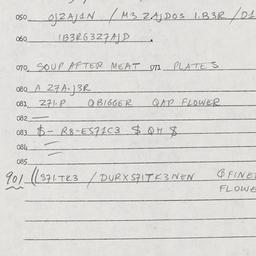 050 OJ2AJ1N / M3 2AJDO3 1.B3R / D1
060 1B3RG327AJD .
070 SOUP AFTER MEAT 071 PLATES
080 A 27A.J3R
081 Z71.P QBIGGER QAP FLOWER
082 —
083 $- R8-ES71C3 $ QM $
084
085
901 ((S71TK3 / DURXS71TK3NEN ¢FINE
FLOWE